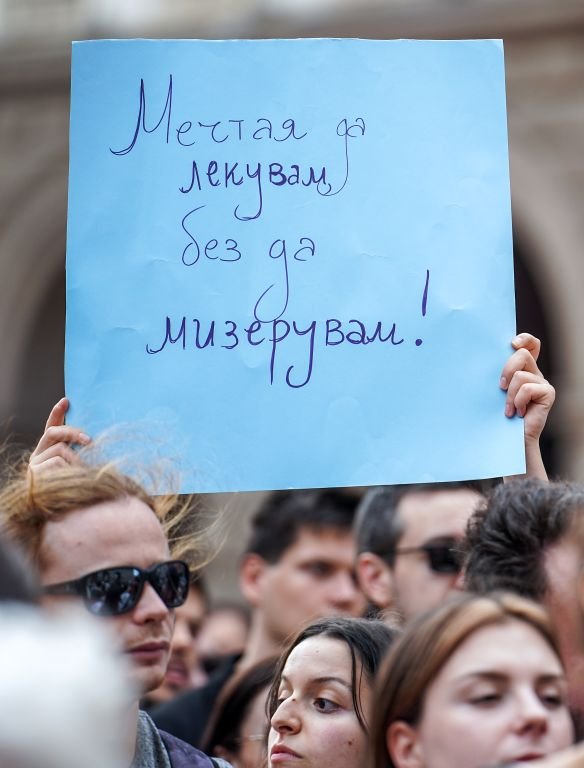 Мечтая да
лекувам,
без да
мизерувам!